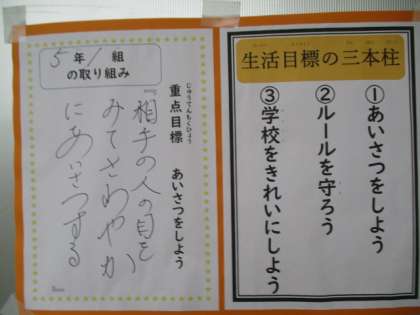 5年1組
の取り組み
重点目標 あいさつをしよう
じゅうてんもくひょう
『相手の人の目を
みてさわやか
にあいさつする
』
生活目標の三本柱
①あいさつをしよう
②ルールを守ろう
③学校をきれいにしよう